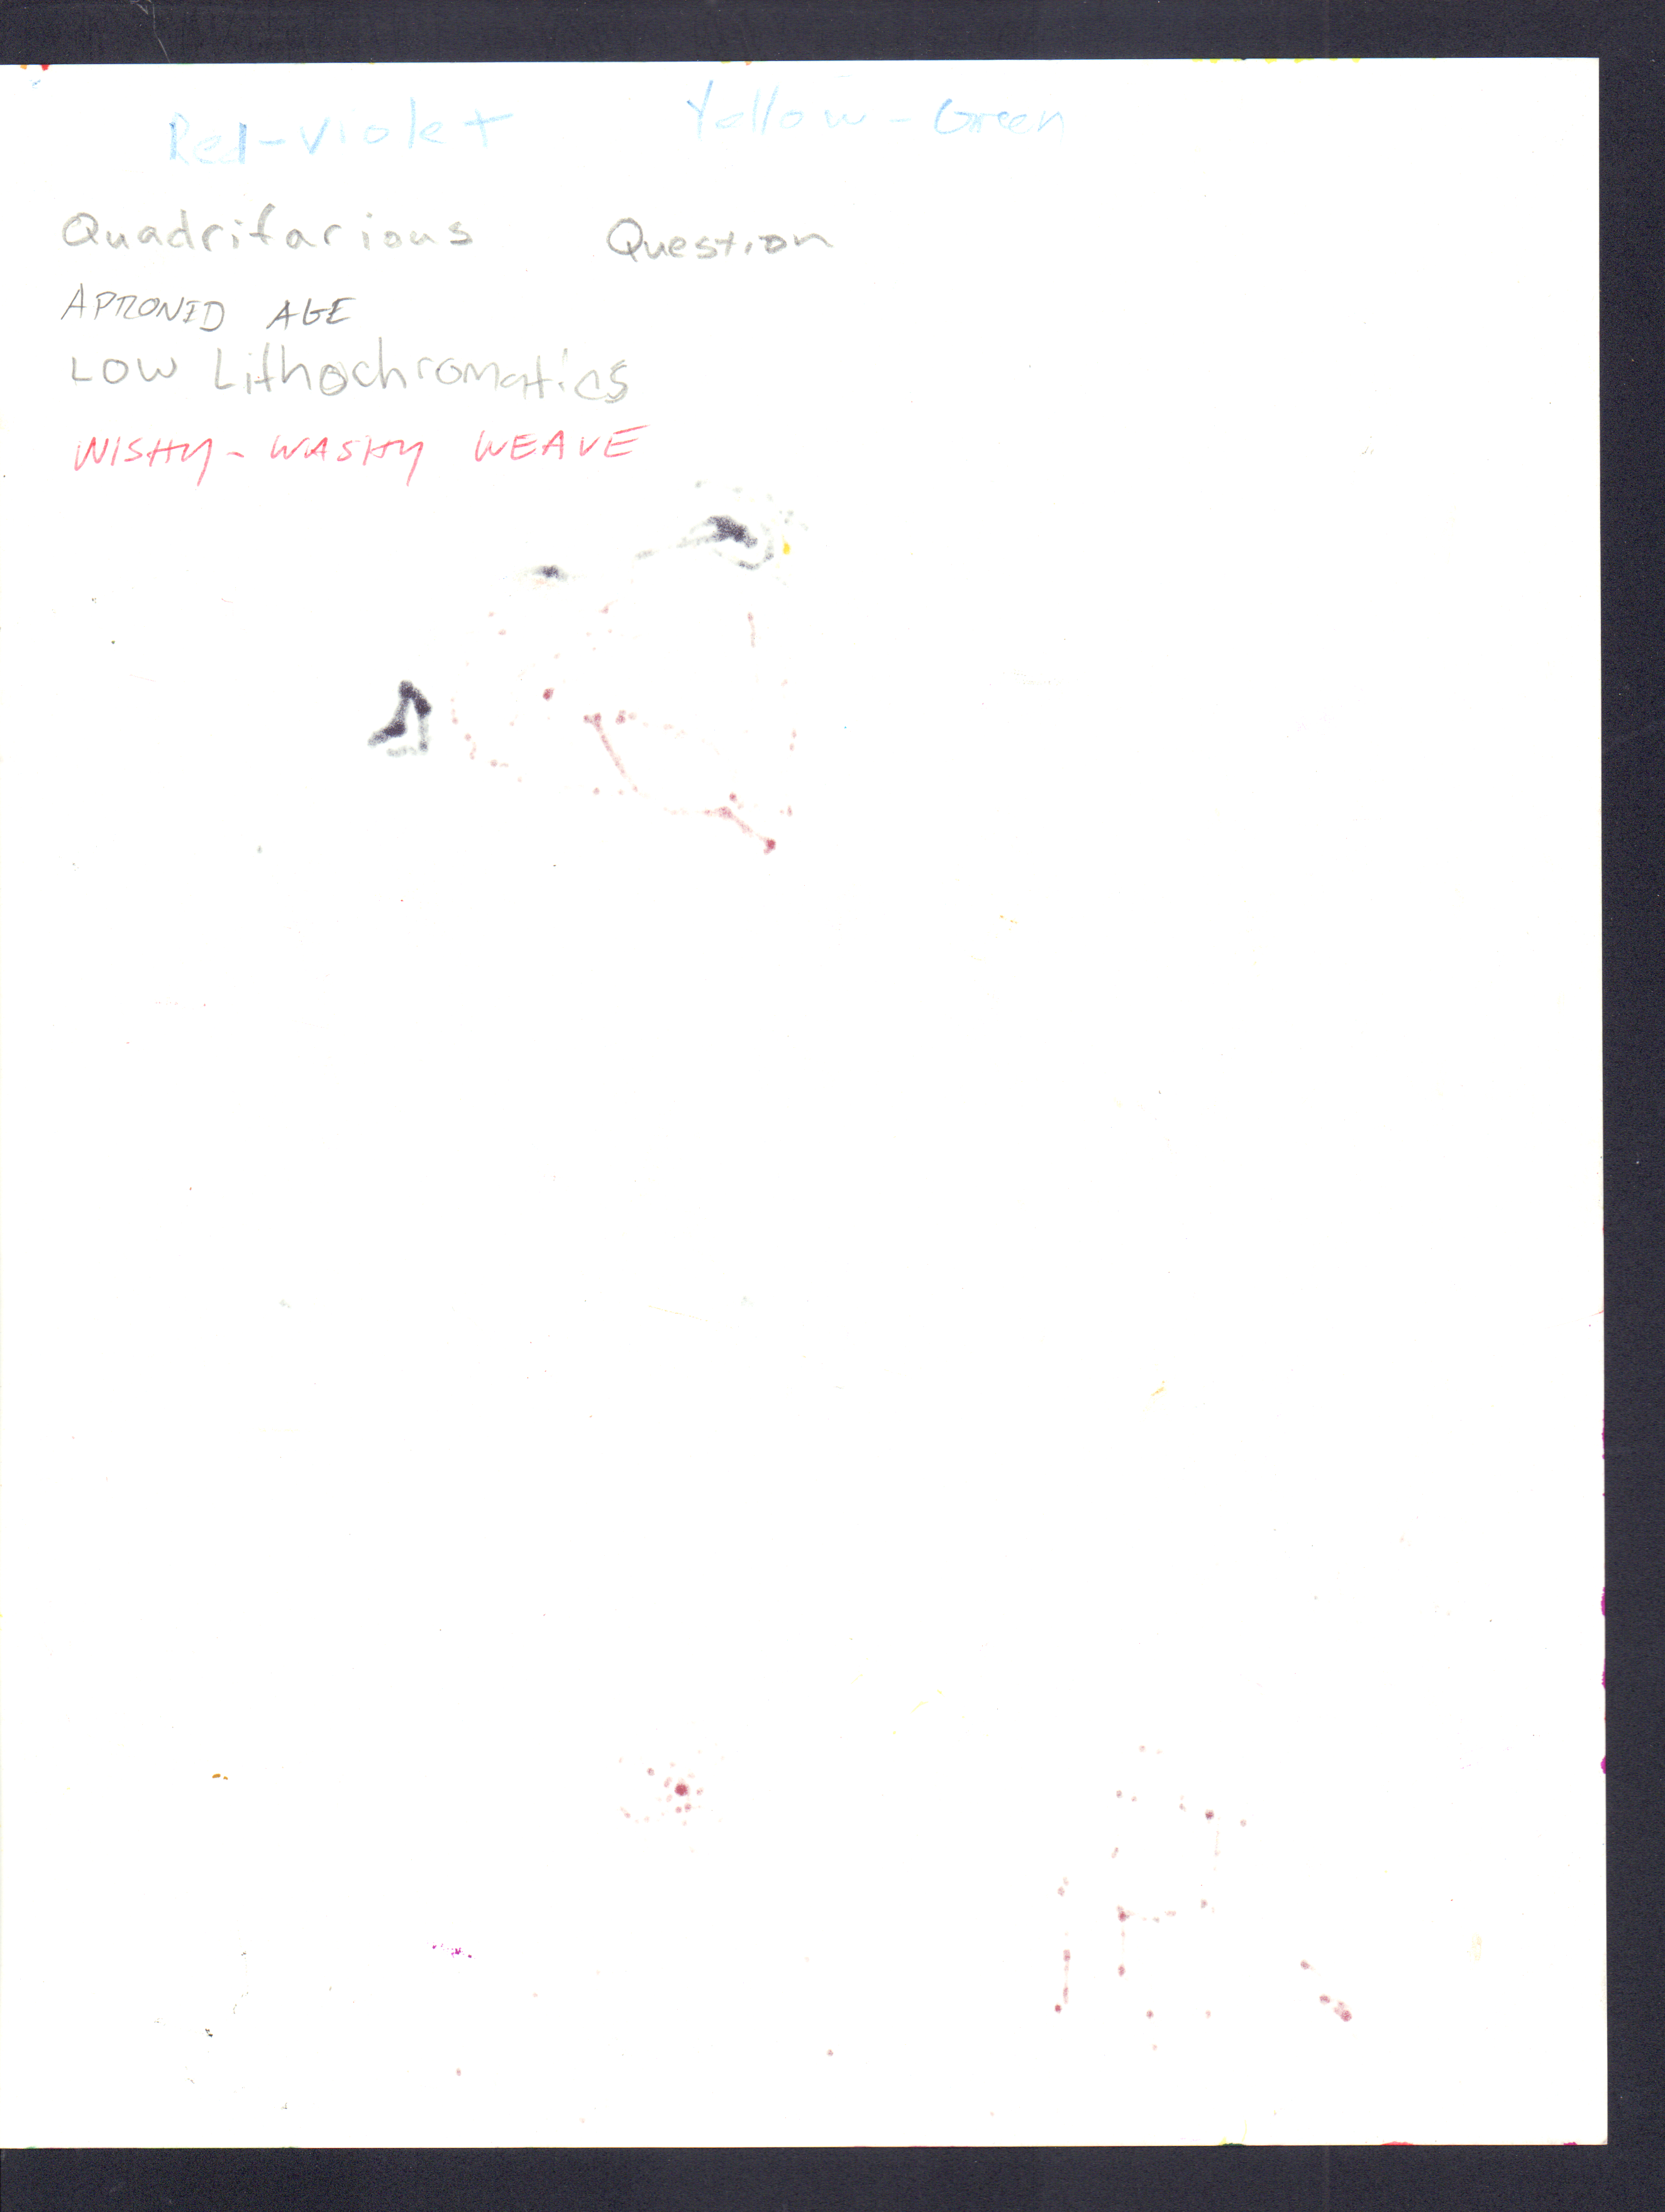 Red-Violet Yellow-Green
Quadrifarious Question
APRONED AGE
LOW Lithochromatics
WISHY-WASHY WEAVE